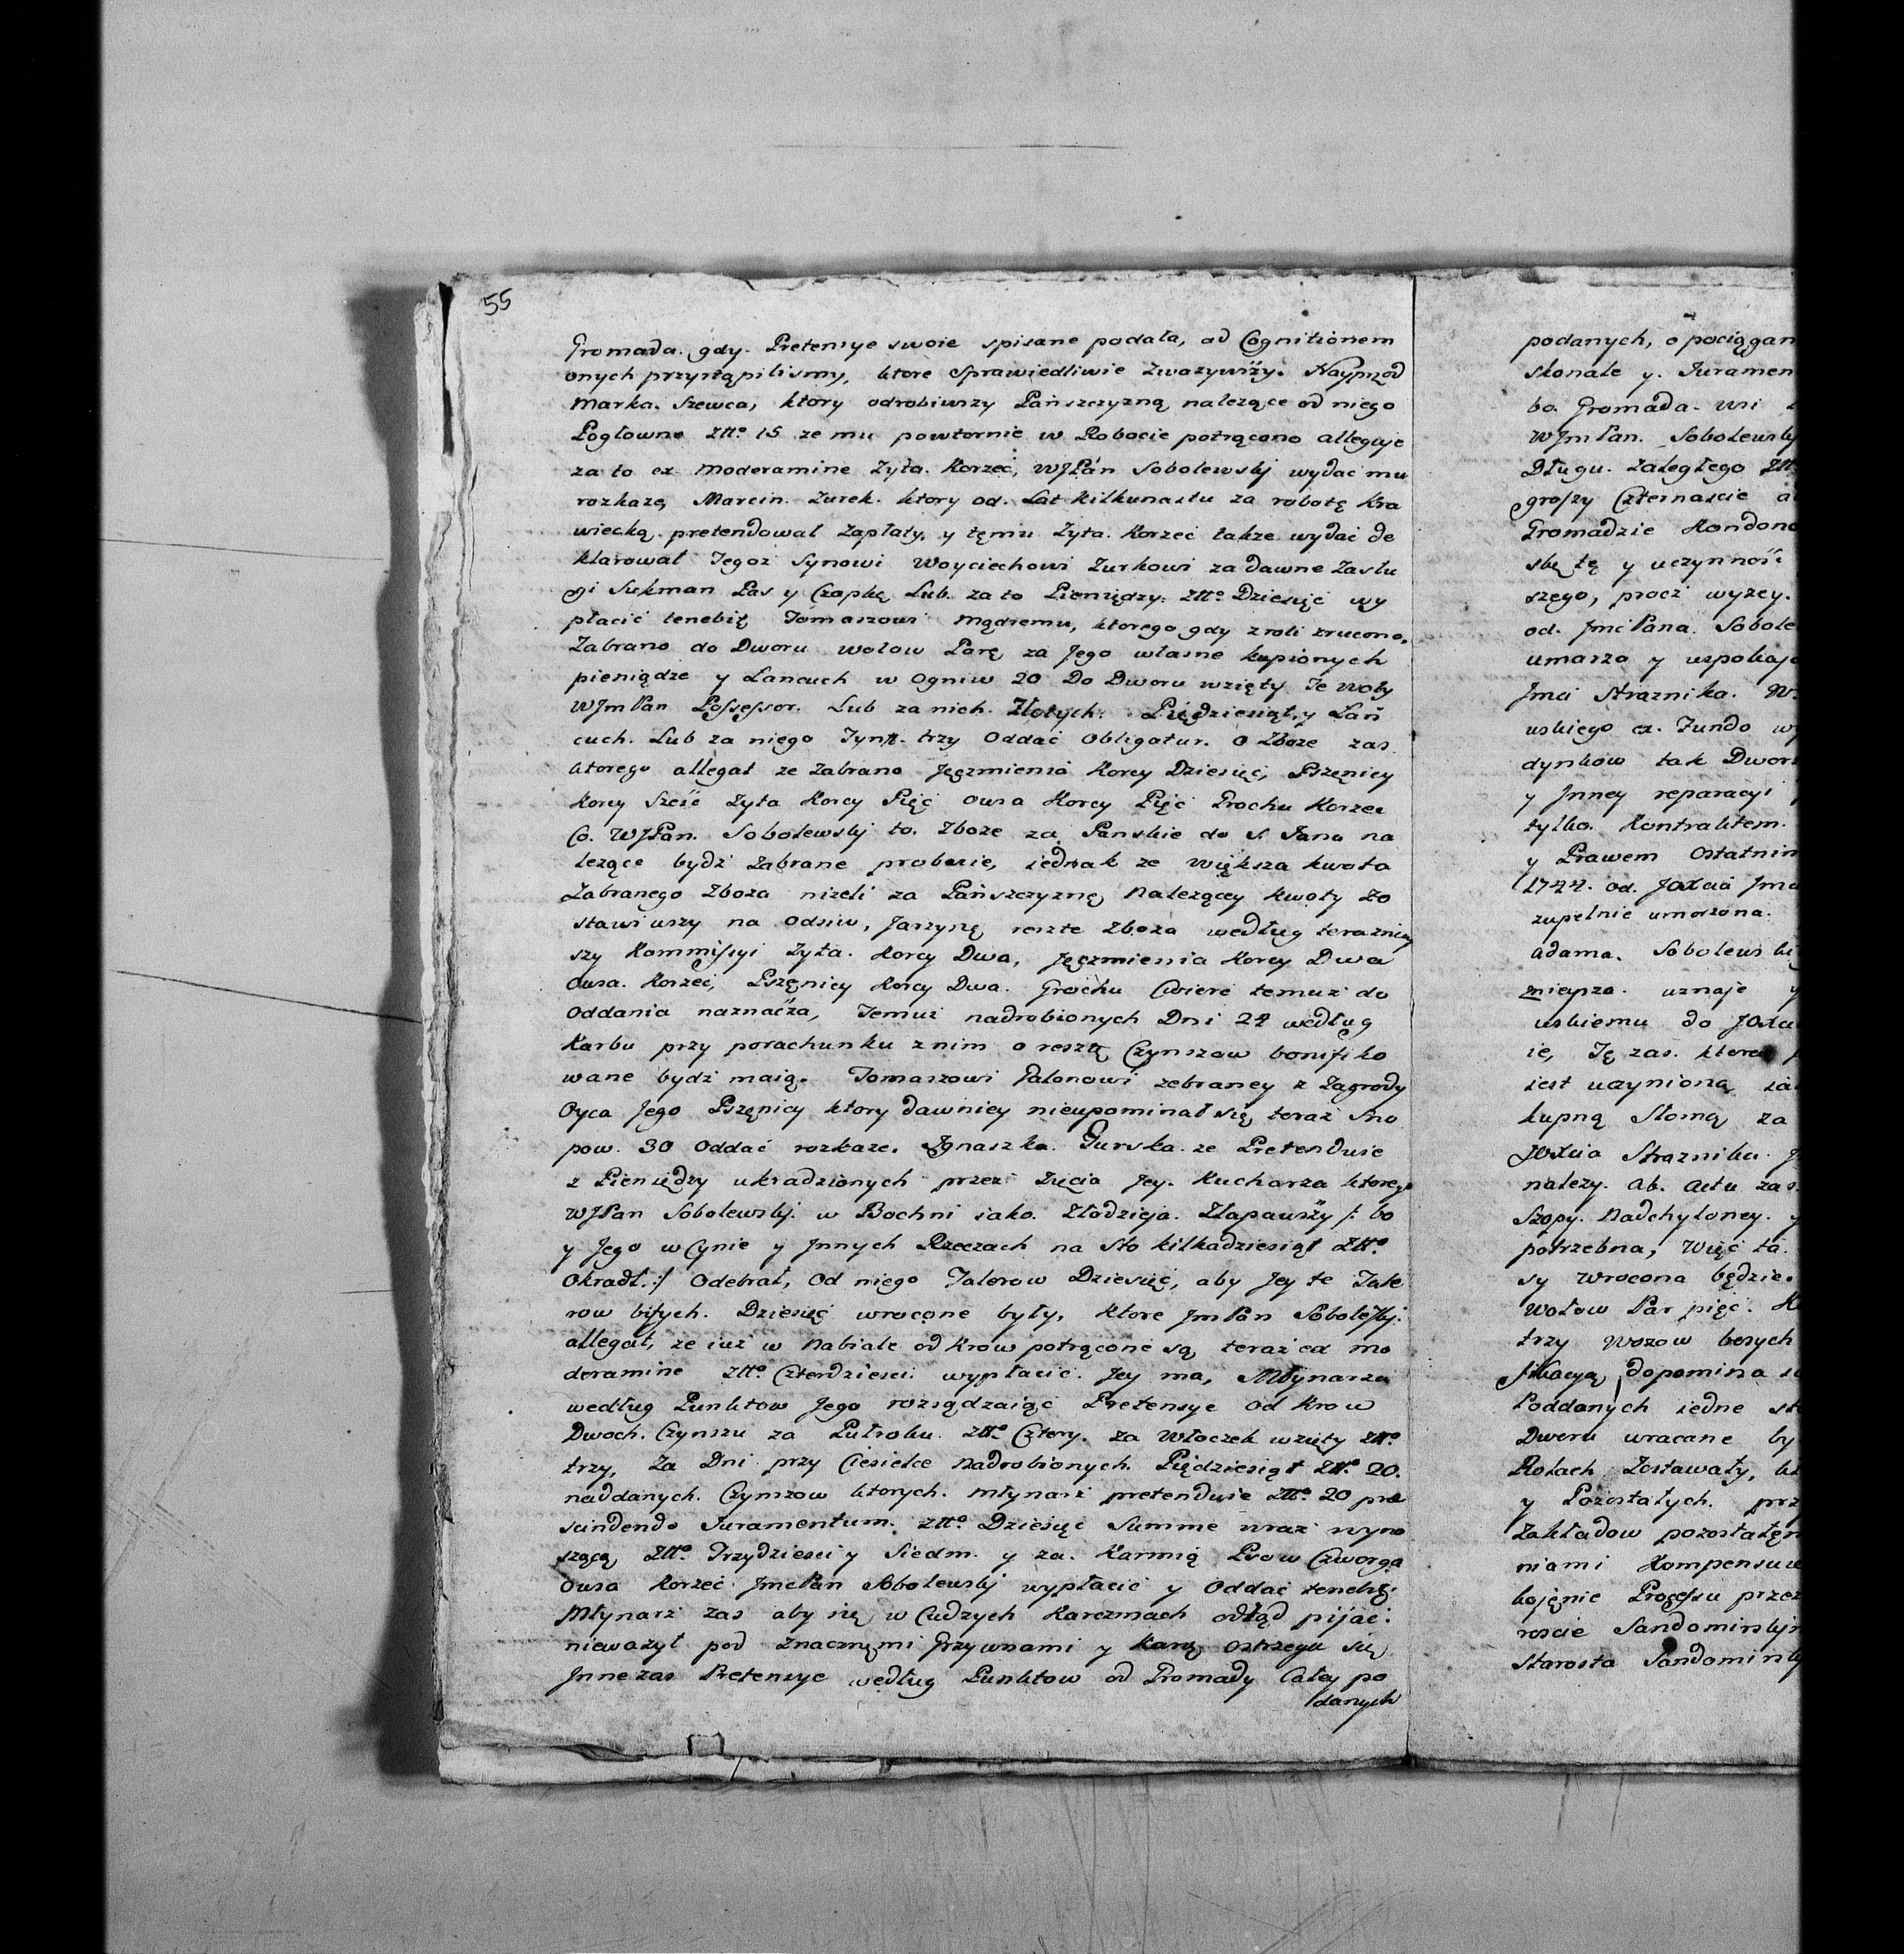 55
Gromada. gdy. Pretensye swoie spisane podała, ad Cognitionem
onych przystąpilismy, ktore sprawiedliwie zwazywszy. Nayprzod
Marka. Szewca, ktory odrobiwszy Pańszczyzną nalezące od niego
Pogłowne Złło 15 ze mu powtornie w Robocie potrącono alleguje
za to ex Moderamine Zyta. Korzec, WJPan Sobolewskj wydac mu
rozkazę, Marcin. Zurek. ktory od. Lat kilkunastu za robotę Kra
wiecką pretendował Zapłaty, y tęmu Zyta. Korzec takze wydać de
klarował Jegoz Synowi Woyciechowi Zurkowi za dawne Zasłu
gi Sukman Pas y Czapkę Lub. za to Pieniędzy. Złło. Dziesięć wy
płacić tenebit Tomaszowi Mądremu, ktorego gdy z roli zrucono,
Zabrano do Dworu wołow Parę za Jego własne kupionych
pieniądze y Lancuch w Ogniw 20 Do Dworu wzięty Te woły
WJmPan Possessor. Lub za nich. Złotych. Piędziesiąt, y Łań
cuch. Lub za niego Tynff. trzy Oddać Obligatur. O Zboze zas
ktorego allegat ze Zabrano Jęczmienia Korcy Dziesięc, Pszęnicy
Korcy Szesć Zyta Korcy Pięć Owsa Korcy Pięć Grochu Korzec
Co. WJPan. Sobolewskj to. Zboze za Panskie do S. Jana na
lezące bydź Zabrane probuie, iednak ze większa kwota
Zabranego Zboza nizeli za Pańszczyznę Nalezącey kwoty Zo
stawiwszy na Odsiw, Jarzynę reszte Zboza według terazniey
szy Kommissyi Zyta. Korcy Dwa, Jęczmienia Korcy Dwa
Owsa. Korzec, Pszęnicy Korcy Dwa. Grochu Cwierc temuz do
Oddania naznacza, Temuz nadrobionych Dni 24 według
Karbu przy porachunku z nim o resztę Czynszow bonifiko
wane bydź maią. Tomaszowi Palonowi zebraney z Zagrody
Oyca Jego Pszęnicy ktory dawniey nieupominał się, teraz Sno
pow. 30 Oddać rozkaze. Agnaszka. Gurska. ze Pretenduie
z Pieniędzy ukradzionych przez Zięcia Jey. Kucharza ktorego
WJPan Sobolewskj. w Bochni iako. Złodzieja. Złapawszy /: bo
y Jego w Cynie y Jnnych Rzeczach na Sto kilkadziesiąt Złło
Okradł. :/ Odebrał, Od niego Talerow Dziesięć, aby Jey te Tale
row bitych. Dziesięć wrocone były, ktore JmPan
allegat, ze iuz w Nabiale od Krow potrącone są, teraz ex mo
deramine Złło. Czterdziesci. wypłacic. Jey ma, Młynarza
według Punktow Jego roziądzaiąc Pretensye Od Krow
Dwoch. Czynszu za Putroku. Złło Cztery. Za Włoczek wzięty Złło
trzy, Za Dni przy Ciesielce Nadrobionych. Pięćdziesiąt Złło. 20.
naddanych. Czynszow ktorych. Młynarz pretenduie Złło. 20 præ
scindendo Juramentum. Złło Dziesięc Summe wraz wyno
szącą Złło. Trzydziesci y Siedm. y za. Karmią Psow Czworga
Owsa Korzec. JmcPan Sobolewskj wypłacic y Oddać tenebit.
Młynarz zas aby się w Cudzych Karczmach odtąd pijać.
niewazył pod Znacznemi Grzywnami y Karą ostrzega się
Jnne zas Pretensye według Punktow od Gromady Całey po
danych
podanych, o pociągan
skonale y. Juramen
bo. Gromada. wsi
WJmPan. Sobolewsk
Długu. Zaległego Złł
groszy Czternascie a
Gromadzie Kondono
sbę tę y uczynnosć
szego, procz wyzey.
od. JmciPana. Sobole
umarza y uspokaja
Jmci Straznika. W.
uskiego ex. Fundo wy
dynkow tak Dwors
y Jnney reparacyi
tylko. Kontraktem.
y Prawem Ostatnim
1744. od. JOXcia Jmc
zupełnie umorzona.
adama. Sobolewski
uznaje y
uskiemu do JOXcia
ie, Tę zas. ktora
iest uczynioną
kupną Słomą za
JOXcia Straznika. J
nalezy. ab. actu zas.
Szopy. Nadchyloney. y
potrzebna, Więc ta.
sy Wrocona będzie.
Wołow Par pięc. K
trzy Wozow bosych
dopomina
Poddanych iedne
Dworu wracane by
Rolach Zostawały,
y Pozostałych. prz
Zakładow pozostałęm
niami Kompensuie
Processu przez
roscie Sandomirskjm
Starosta Sandomirskj